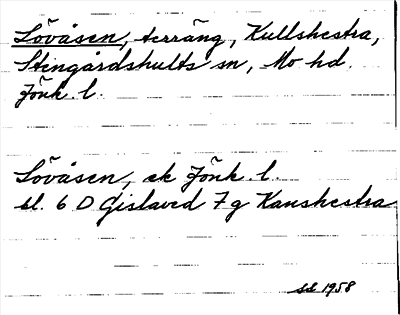 Lövåsen, terräng, Kullshestra,
Stengårdshults sn, Mo hd.
Jönk. l.
Lövåsen, ek Jönk. l.
bl. 6 D Gislaved 7g Kanshestra
SS 1958